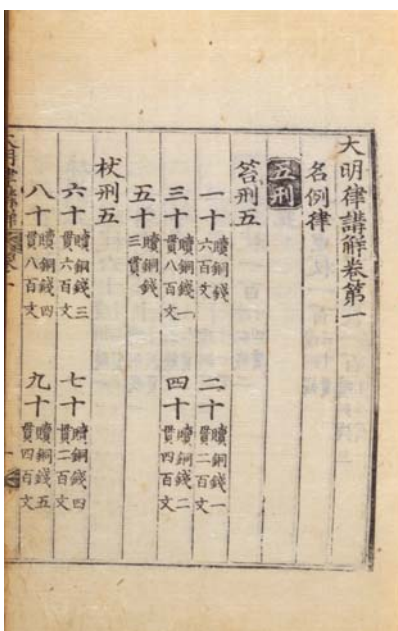 大明律講解卷第一
名例律
五刑
笞刑五
一十贖銅錢六百文 二十贖銅錢一貫二百文
三十贖銅錢一貫八百文 四十贖銅錢二貫四百文
五十贖銅錢三貫
杖刑五
六十贖銅錢三貫六百文 七十贖銅錢四貫二百文
八十贖銅錢四貫八百文 九十贖銅錢五貫四百文